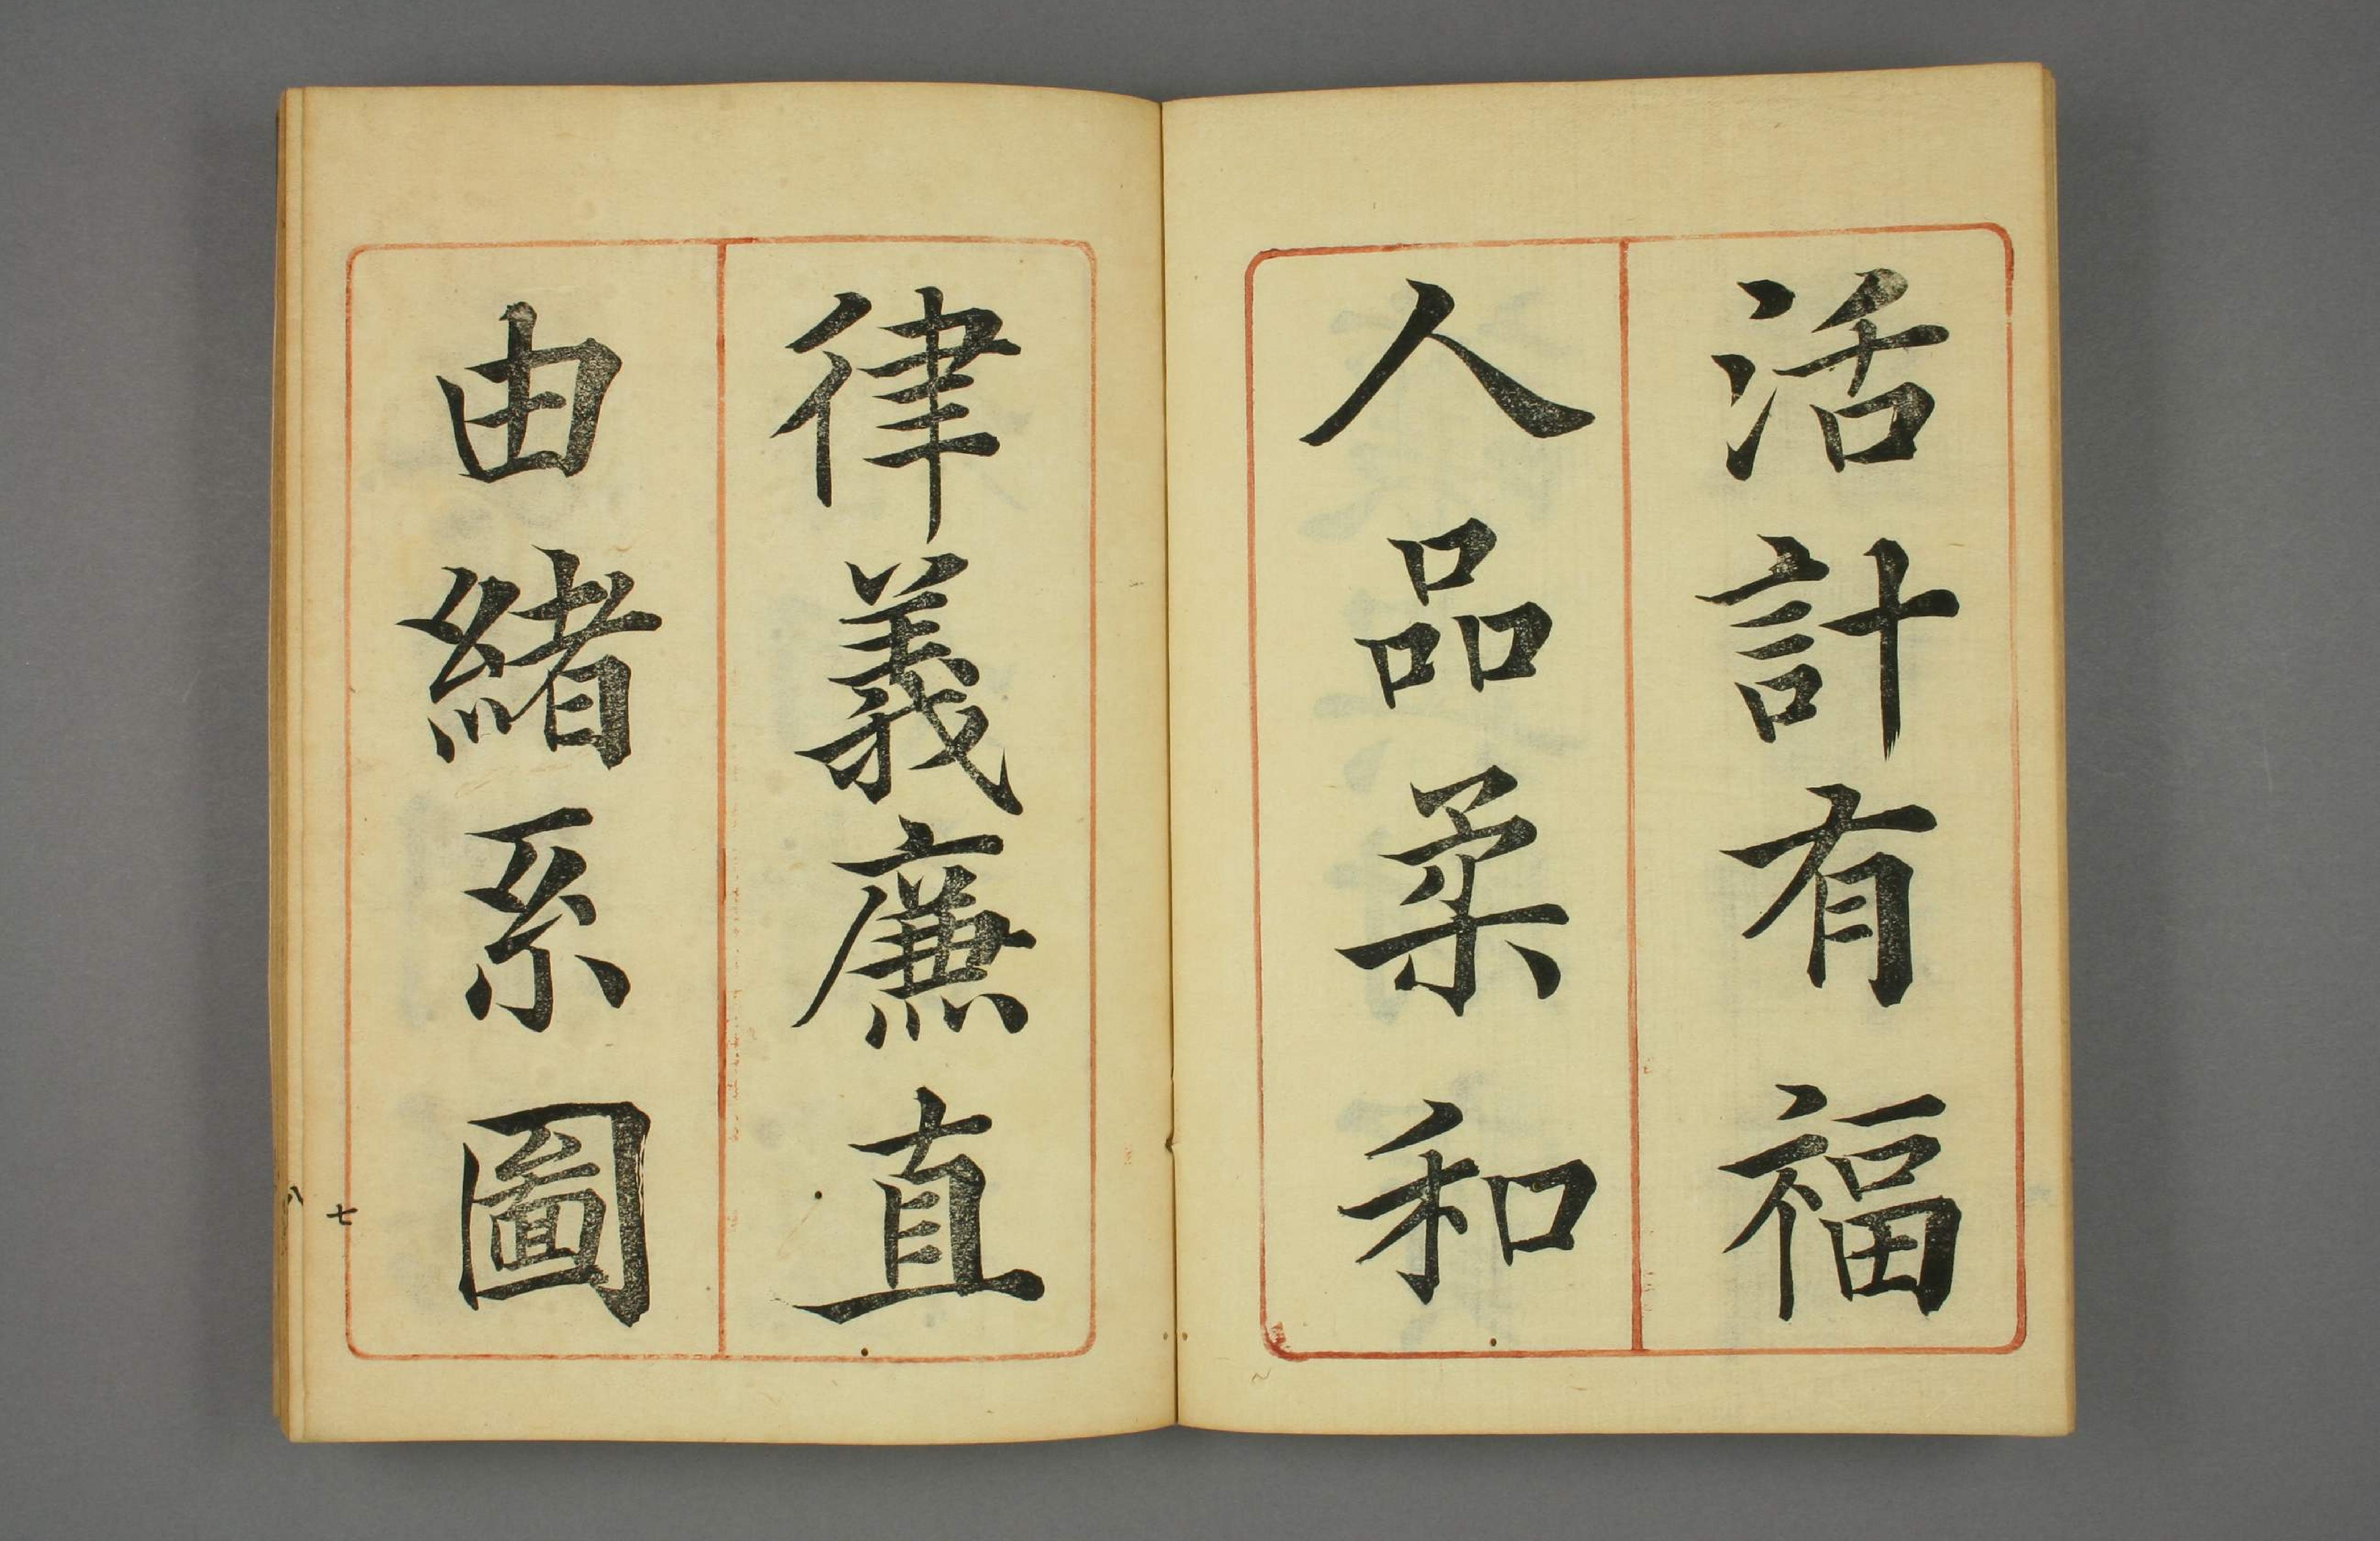 活計有福
人品柔和
律義廉直
由緒系圖
七
八